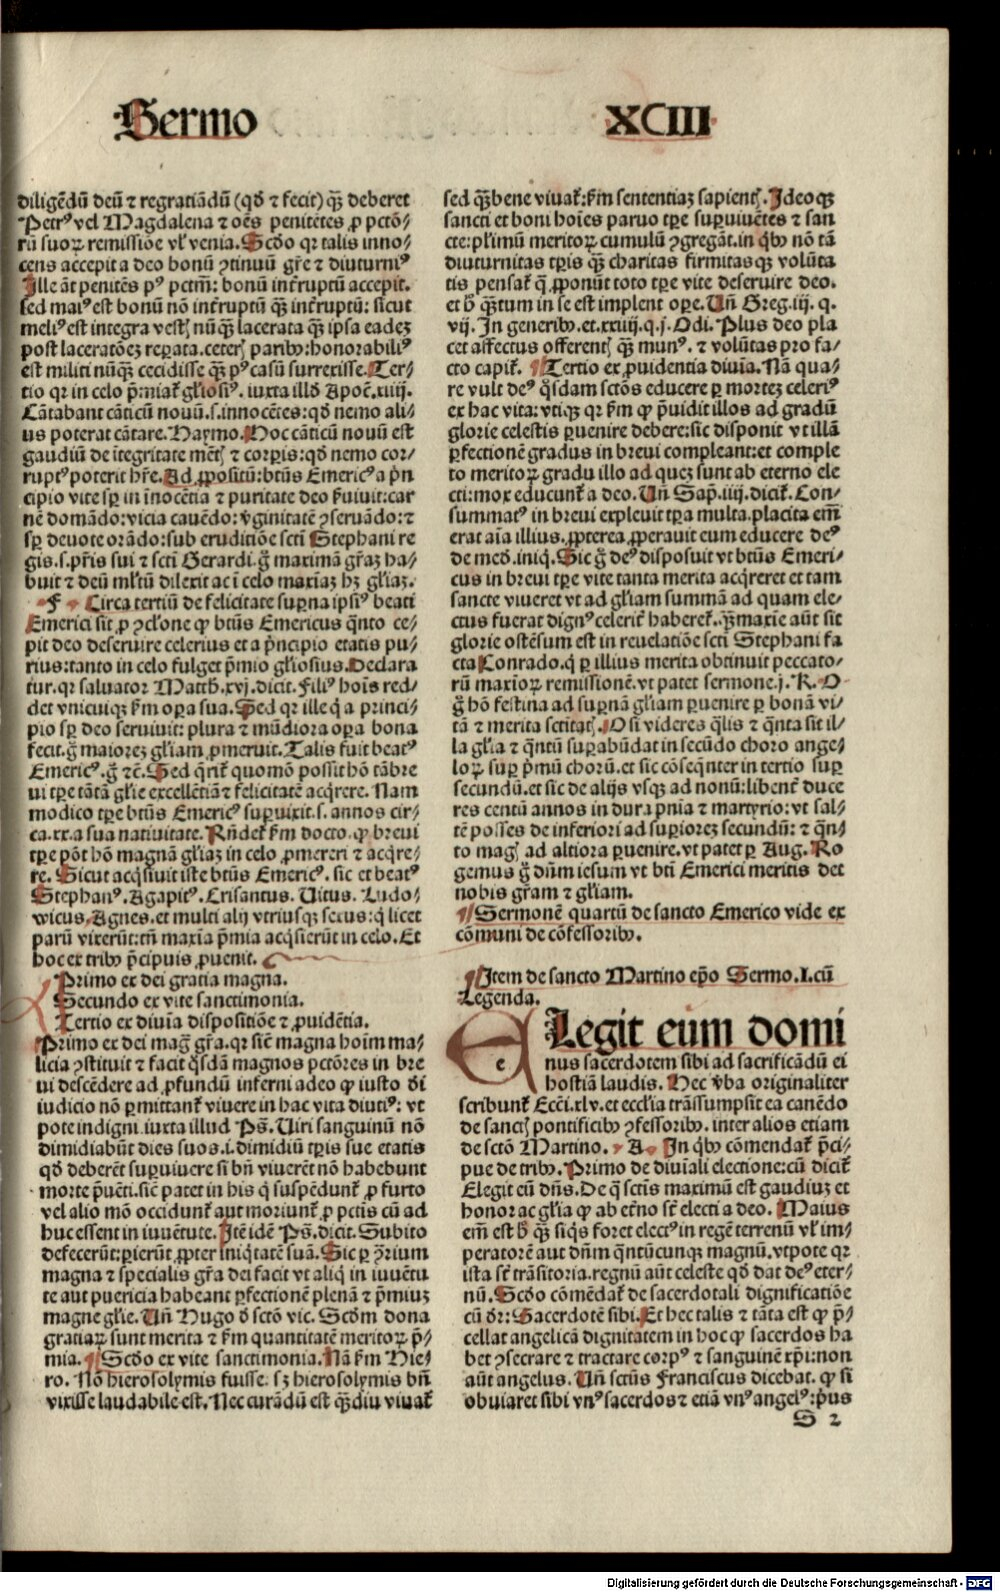 Sermo
XCIII
diligēdū deū ⁊ regratiādū (qđ ⁊ fecit) q̄ꝫ deberet
Petrꝰ vel Magdalena ⁊ oēs penitētes ꝓ pctō-
rū suoꝝ remissiōe vl' venia. Scđo qꝛ talis inno-
cens accepit a deo bonū ꝯtinuū gr̄e ⁊ diuturniꝰ
Ille āt penitēs pꝰ pctm̄: bonū inťruptū accepit.
sed maiꝰ est bonū nō inťruptū q̄ꝫ inťruptū: sicut
meliꝰ est integra vestꝭ nūq̄ꝫ lacerata q̄ꝫ ipsa eadeꝫ
post laceratōeꝫ reꝑata. ceterꝭ paribꝰ: honorabiliꝰ
est militi nūq̄ꝫ cecidisse q̄ꝫ pꝰ casū surrexisse. Ter-
tio qꝛ in celo p̄miať gl'iosiꝰ. iuxta illđ Apoc̄. xiiij.
Cātabant cāticū nouū. s. innocētes: qđ nemo ali-
us poterat cātare. Haymo. Hoc cāticū nouū est
gaudiū de ītegritate mētꝭ ⁊ corꝑis: qđ nemo cor-
ruptꝰ poterit hr̄e. Ad ꝓpositū: btūs Emericꝰ a p̄n
cipio vite sꝑ in īnocētia ⁊ puritate deo ẜuiuit: car
nē domādo: vicia cauēdo: v̄ginitatē ꝯseruādo: ⁊
sꝑ deuote orādo: sub eruditiōe scti Stephani re
gis. s. pr̄is sui ⁊ scti Gerardi. g̊ maximā gr̄aꝫ ha-
buit ⁊ deū ml'tū dilexit ac ī celo maxīaꝫ hꝫ gl'iaꝫ.
F Circa tertiū de felicitate suꝑna ipsiꝰ beati
Emerici sit ꝓ ꝯclone ꝙ btūs Emericus q̄nto ce-
pit deo deseruire celerius et a p̄ncipio etatis pu-
rius: tanto in celo fulget p̄mio gl'iosius. Declara
tur. qꝛ saluator Matth. xvj. dicit. Filiꝰ hoīs red-
det vnicuiqꝫ ẜm oꝑa sua. Sed qꝛ ille q̇ a princi-
pio sꝑ deo seruiuit: plura ⁊ mūdiora oꝑa bona
fecit. g̊ maioreꝫ gl'iam ꝓmeruit. Talis fuit beatꝰ
Emericꝰ. g̊ ⁊c̄. Sed q̄riť quomō possit hō tā bre
ui tꝑe tātā gl'ie excellētiā ⁊ felicitatē acq̇rere. Nam
modico tꝑe btūs Emericꝰ suꝑuixit. s. annos cir-
ca. xx. a sua natiuitate. Rn̄deť ẜm docto. ꝙ breui
tꝑe pōt hō magnā gl'iaꝫ in celo ꝓmereri ⁊ acq̇re-
re. Sicut acq̇siuit iste btūs Emericꝰ. sic et beatꝰ
Stephanꝰ. Agapitꝰ. Crisantus. Uitus. Ludo-
wicus. Agnes. et multi alij vtriusqꝫ sexus: q̇ licet
parū vixerūt: tn̄ maxīa p̄mia acq̇sierūt in celo. Et
hoc ex tribꝰ p̄cipuis ꝓuenit.
Primo ex dei gratia magna.
Secundo ex vite sanctimonia.
Tertio ex diuīa dispositiōe ⁊ ꝓuidētia.
Primo ex dei maḡ gr̄a. qꝛ sic̄ magna hoīm ma-
licia ꝯstituit ⁊ facit q̇sdā magnos pctōres in bre
ui descēdere ad ꝓfundū inferni adeo ꝙ iusto đi
iudicio nō ꝑmittant̄ viuere in hac vita diutiꝰ: vt
pote indigni. iuxta illud Ps̄. Uiri sanguinū nō
dimidiabūt dies suos. i. dimidiū tꝑis sue etatis
qđ deberēt suꝑuiuere si bn̄ viuerēt nō habebunt
morte p̄uēti. sic̄ patet in his q̇ suspēdunt̄ ꝓ furto
vel alio mō occidunt̄ aut moriunt̄ ꝓ pctis cū ad
huc essent in iuuētute. Itē idē Ps̄. dicit. Subito
defecerūt: ꝑierūt ꝓpter iniq̇tatē suā. Sic ꝑ ꝯ̄rium
magna ⁊ specialis gr̄a dei facit vt aliq̇ in iuuētu
te aut puericia habeant ꝑfectionē plenā ⁊ p̄miuꝫ
magne gl'ie. Un̄ Hugo đ sctō vic. Scđm dona
gratiaꝝ sunt merita ⁊ ẜm quantitatē meritoꝝ p̄-
mia. Scđo ex vite sanctimonia. Nā ẜm Hie-
ro. Nō hierosolymis fuisse. sꝫ hierosolymis bn̄
vixisse laudabile est. Nec curādū est q̄ꝫdiu viuať
sed q̄ꝫ bene viuať: ẜm sententiaꝫ sapientꝭ. Ideoqꝫ
sancti et boni hoīes paruo tꝑe suꝑuiuētes ⁊ san
cte: pl'imū meritoꝝ cumulū ꝯgregāt. in q̇bꝰ nō tā
diuturnitas tꝑis q̄ꝫ charitas firmitasqꝫ volūta
tis pensať q̇ ꝓponūt toto tꝑe vite deseruire deo.
et ꝗtum in se est implent oꝑe. Un̄ Greg. iij. q.
vij. In generibꝰ. et. xxiij. q. j. Odi. Plus deo pla
cet affectus offerentꝭ q̄ꝫ munꝰ. ⁊ volūtas pro fa-
cto capiť. Tertio ex ꝓuidentia diuīa. Nā qua-
re vult deꝰ q̇sdam sctōs educere ꝑ morteꝫ celeriꝰ
ex hac vita: vtiqꝫ qꝛ ẜm ꝙ p̄uidit illos ad gradū
glorie celestis ꝑuenire debere: sic disponit vt illā
ꝑfectionē gradus in breui compleant: et comple
to meritoꝝ gradu illo ad queꝫ sunt ab eterno ele
cti: mox educunt̄ a deo. Un̄ Sap̄. iiij. diciť. Con-
summatꝰ in breui expleuit tꝑa multa. placita em̄
erat aīa illius. ꝓpterea ꝓperauit eum educere deꝰ
de med. iniq̇. Sic g̊ deꝰ disposuit vt btūs Emeri-
cus in breui tꝑe vite tanta merita acq̇reret et tam
sancte viueret vt ad gl'iam summā ad quam ele-
ctus fuerat dignꝰ celeriť habereť. qꝫ maxīe aūt sit
glorie ostēsum est in reuelatiōe scti Stephani fa
cta Conrado. q̇ ꝑ illius merita obtinuit peccato-
rū maxīoꝝ remissionē. vt patet sermone. j. K. O
g̊ hō festina ad suꝑnā gl'iam ꝑuenire ꝑ bonā vi-
tā ⁊ merita sctitatꝭ. O si videres q̄lis ⁊ q̄nta sit il-
la gl'ia ⁊ q̄ntū suꝑabūdat in secūdo choro ange-
loꝝ suꝑ p̄mū chorū. et sic cōseq̄nter in tertio suꝑ
secundū. et sic de alijs vsqꝫ ad nonū: libenť duce
res centū annos in dura pn̄ia ⁊ martyrio: vt sal-
tē posses de inferiori ad suꝑioreꝫ secundū: ⁊ q̄n-
to magꝭ ad altiora ꝑuenire. vt patet ꝑ Aug. Ro
gemus g̊ dn̄m iesum vt bti Emerici meritis det
nobis gr̄am ⁊ gl'iam.
Sermonē quartū de sancto Emerico vide ex
cōmuni de cōfessoribꝰ.
Item de sancto Martino ep̄o Sermo. I. cū
Legenda.
e
Elegit eum domi
nus sacerdotem sibi ad sacrificādū ei
hostiā laudis. Hec v̄ba originaliter
scribunt̄ Ecc̄i. xlv. et eccl'ia trāssumpsit ea canēdo
de sanctꝭ pontificibꝰ ꝯfessoribꝰ. inter alios etiam
de sctō Martino. A In q̇bꝰ cōmendať p̄ci-
pue de tribꝰ. Primo de diuiali electione: cū diciť
Elegit eū dn̄s. De q̊ sctis maximū est gaudiuꝫ et
honor ac gl'ia ꝙ ab et̄no st̄ electi a deo. Maius
em̄ est b̊ q̄ꝫ siq̇s foret electꝰ in regē terrenū vl' im-
peratorē aut dn̄m q̄ntūcunqꝫ magnū. vtpote qꝛ
ista st̄ trāsitoria. regnū aūt celeste qđ dat deꝰ eter-
nū. Scđo cōmēdať de sacerdotali dignificatiōe
cū đr: Sacerdotē sibi. Et hec talis ⁊ tāta est ꝙ p̄-
cellat angelicā dignitatem in hoc ꝙ sacerdos ha
bet ꝯsecrare ⁊ tractare corpꝰ ⁊ sanguinē xp̄i: non
aūt angelus. Un̄ sctūs Franciscus dicebat. ꝙ si
obuiaret sibi vnꝰ sacerdos ⁊ etiā vnꝰ angelꝰ: p̄us
S 2
Digitalisierung gefördert durch die Deutsche Forschungsgemeinschaft - DFG